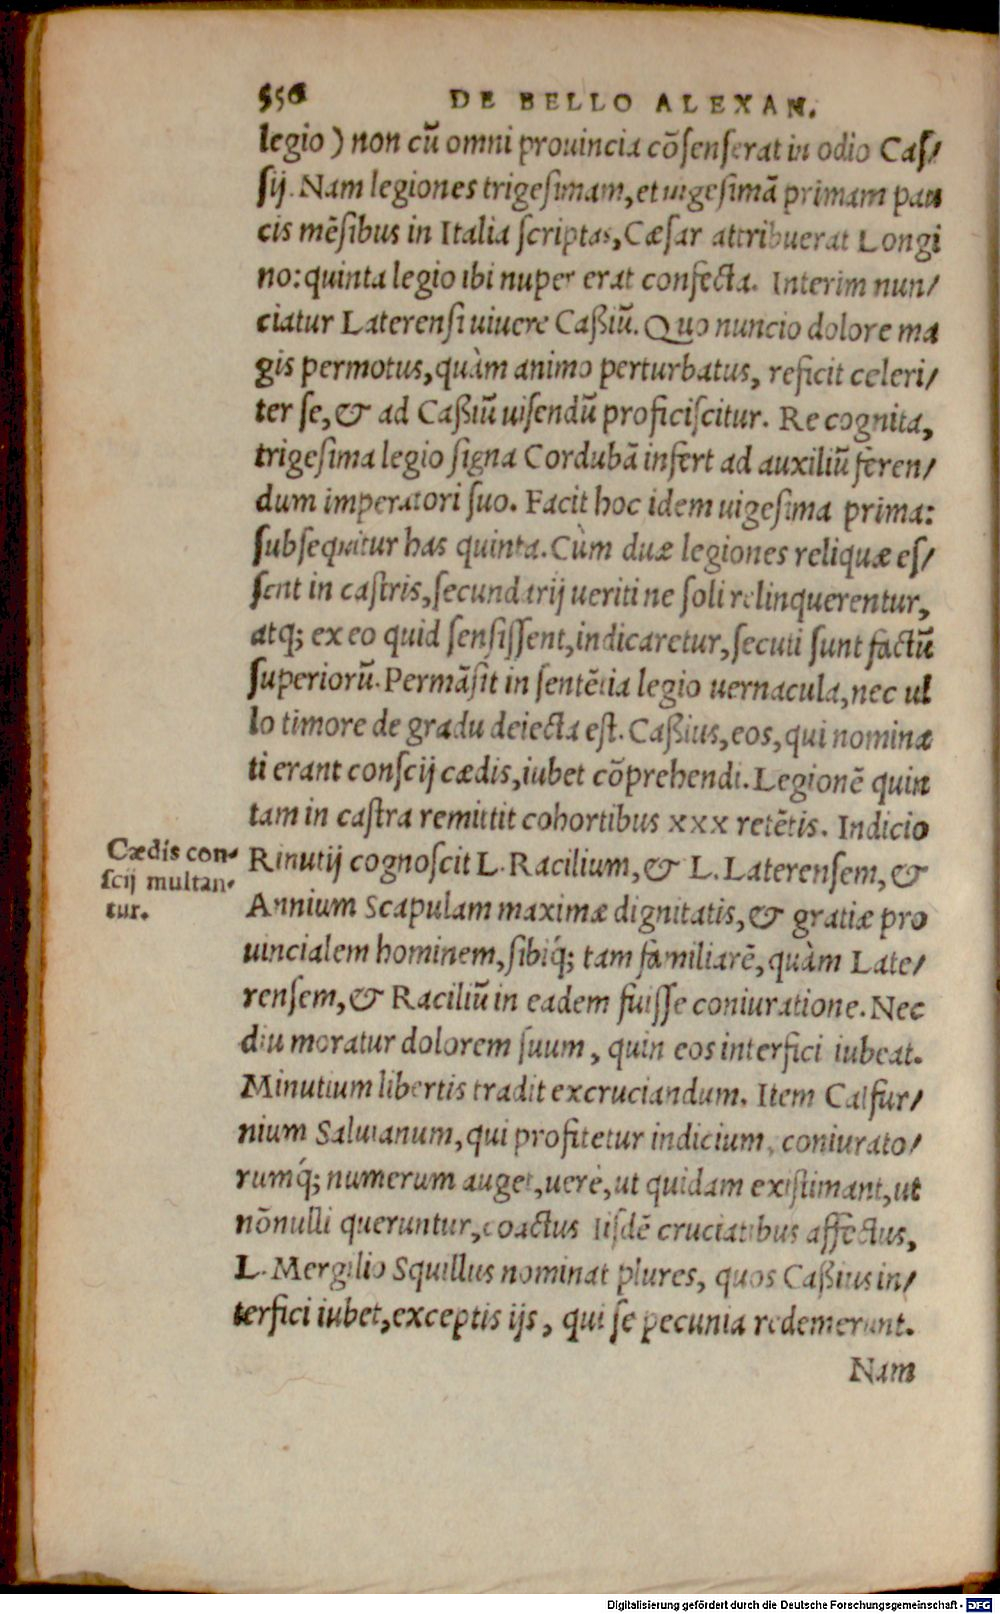 556 DE BELLO ALEXAN.
legio) non cū omni prouincia cōſenſerat in odio Caſ/
ſij. Nam legiones trigeſimam, et uigeſimā primam pau
cis mēſibus in Italia ſcriptas, Cæſar attribuerat Longi
no: quinta legio ibi nuper erat confecta. Interim nun/
ciatur Laterenſi uiuere Caßiū. Quo nuncio dolore ma
gis permotus, quàm animo perturbatus, reficit celeri/
ter ſe, & ad Caßiū uiſendū proficiſcitur. Re cognita,
trigeſima legio ſigna Cordubā infert ad auxiliū feren/
dum imperatori ſuo. Facit hoc idem uigeſima prima:
ſubſequitur has quinta. Cùm duæ legiones reliquæ eſ/
ſent in caſtris, ſecundarij ueriti ne ſoli relinquerentur,
atq; ex eo quid ſenſiſſent, indicaretur, ſecuti ſunt factū
ſuperiorū. Permāſit in ſentētia legio uernacula, nec ul
lo timore de gradu deiecta eſt. Caßius, eos, qui nomina
ti erant conſcij cædis, iubet cōprehendi. Legionē quin
tam in caſtra remittit cohortibus xxx retētis. Indicio
Cædis con-
ſcij multan-
tur.
Rinutij cognoſcit L. Racilium, & L. Laterenſem, &
Annium Scapulam maximæ dignitatis, & gratiæ pro
uincialem hominem, ſibiq́; tam familiarē, quàm Late/
renſem, & Raciliū in eadem fuiſſe coniuratione. Nec
diu moratur dolorem ſuum, quin eos interfici iubeat.
Minutium libertis tradit excruciandum. Item Calfur/
nium Saluianum, qui profitetur indicium, coniurato/
rumq́; numerum auget, uerè, ut quidam exiſtimant, ut
nōnulli queruntur, coactus Iiſdē cruciatibus affectus,
L. Mergilio Squillus nominat plures, quos Caßius in/
terfici iubet, exceptis ijs, qui ſe pecunia redemerunt.
Nam
Digitalisierung gefördert durch die Deutsche Forschungsgemeinschaft - DFG